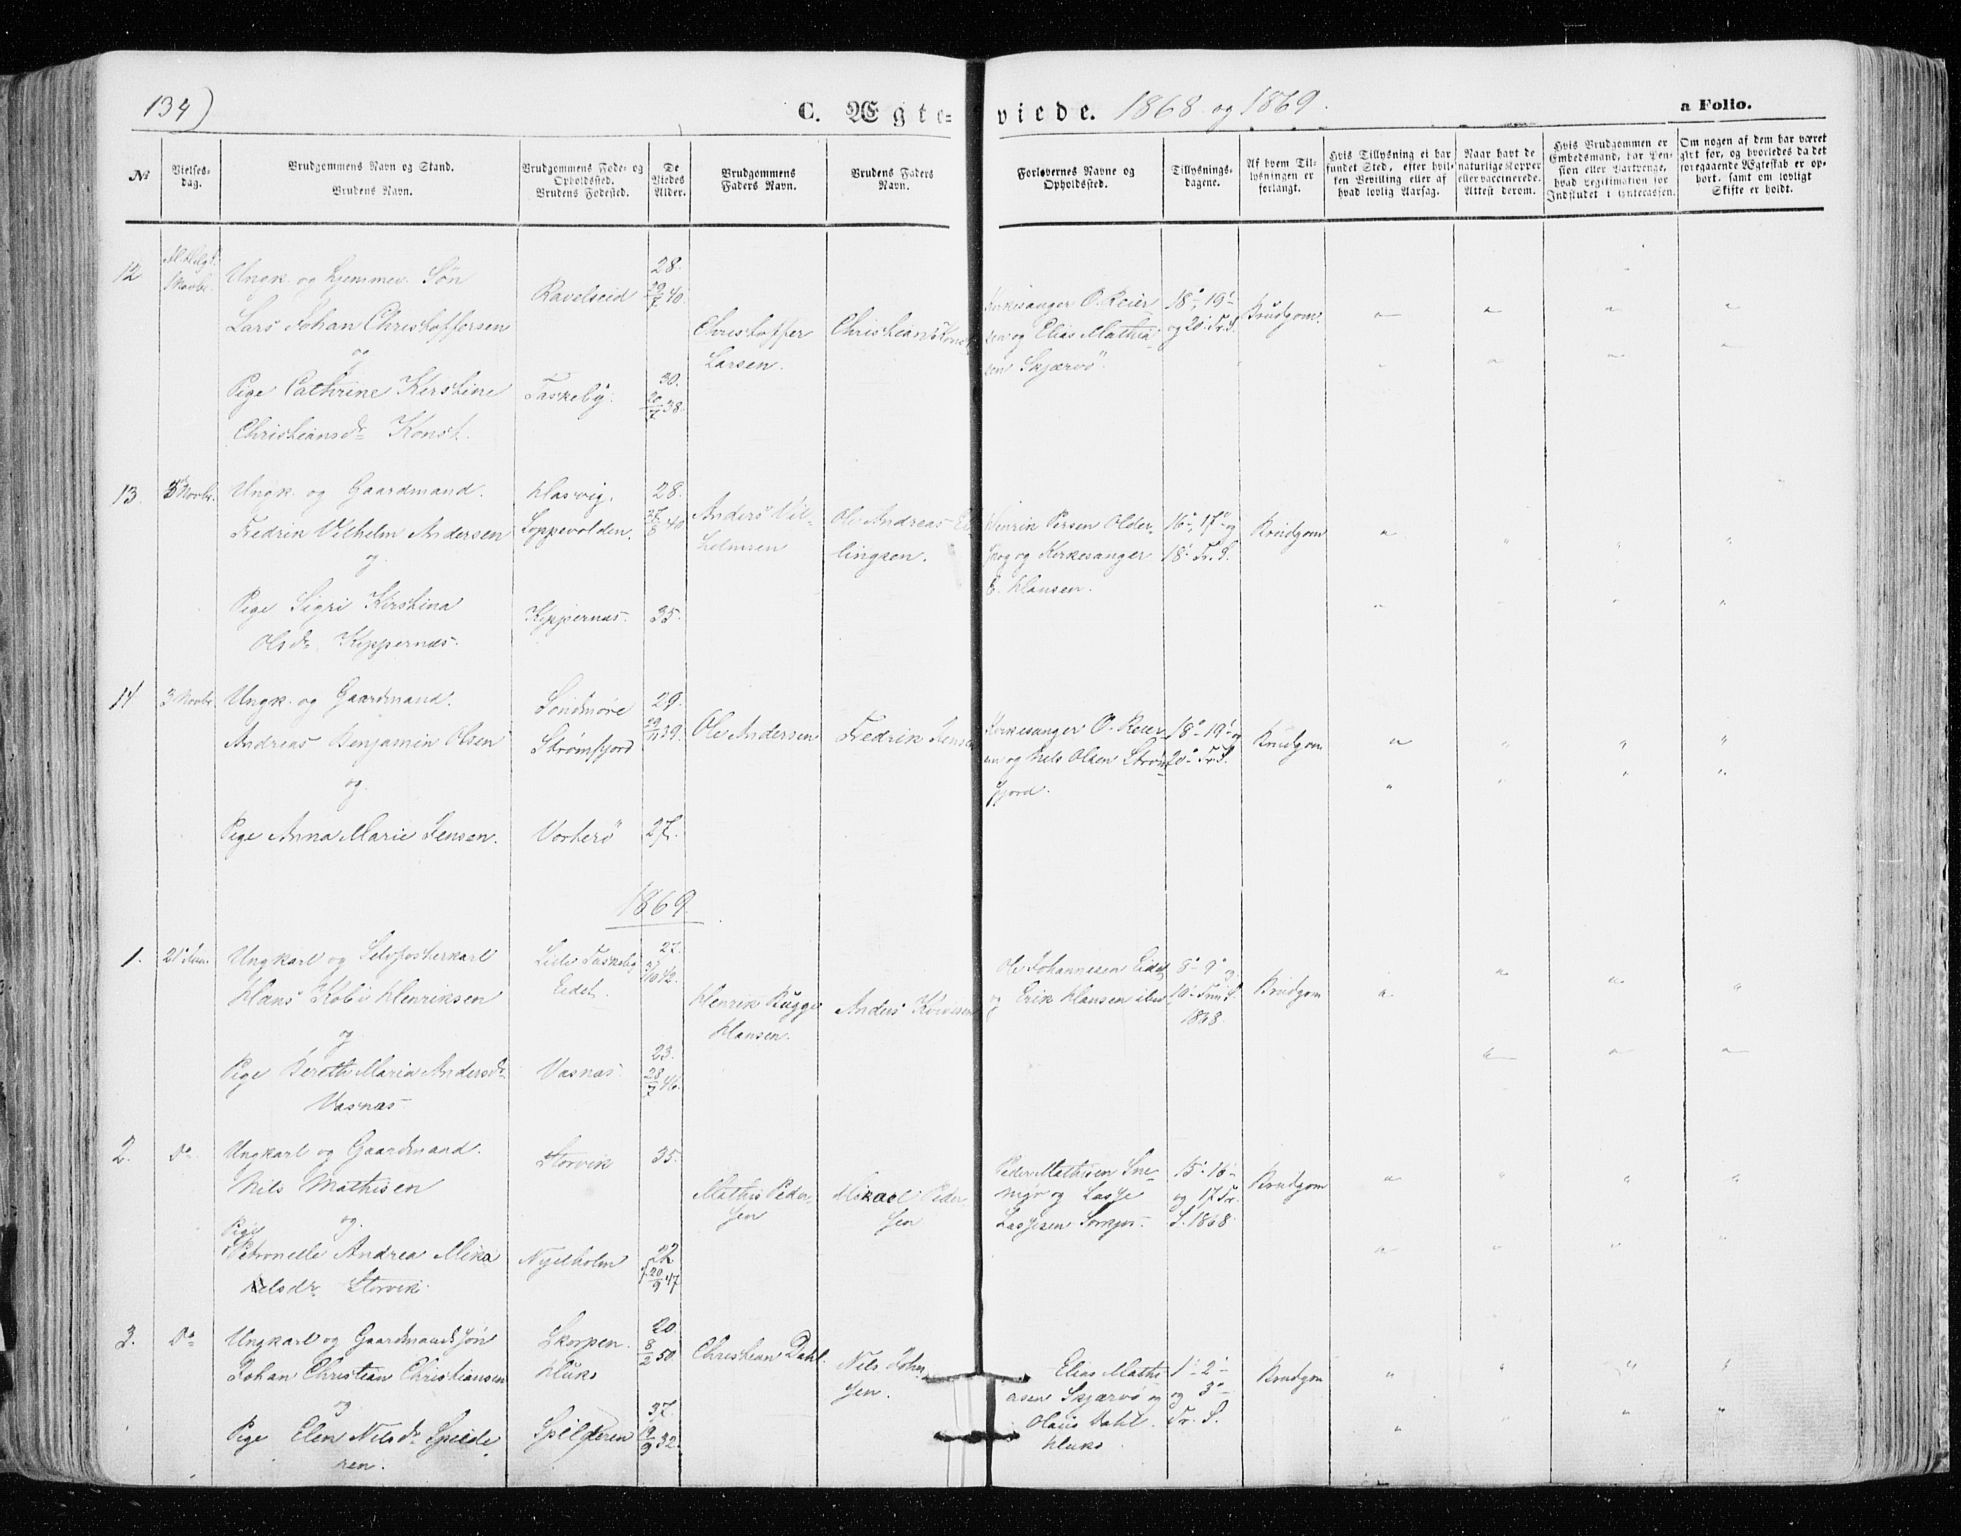 134)
C. Ægte=
viede. 1868 og 1869.
a Folio.
No
Vielses-
dag.
Brudgommens Navn og Stand.
Brudens Navn.
Brudgommens Føde- og
Opholdssted.
Brudens Fødested.
De
Viedes
Alder.
Brudgommens
Faders Navn.
Brudens Faders
Navn.
Forlovernes Navne og
Opholdssted.
Tillysnings-
dagene.
Af hvem Til-
lysningen er
forlangt.
Hvis Tillysning ei har
fundet Sted, efter hvil-
ken Bevilling eller af
hvad lovlig Aarsag.
Naar havt de
naturlige Kopper
eller vaccinerede.
Attest derom.
Hvis Brudgommen er
Embedsmand, har Pen-
sion eller Vartpenge,
hvad Legitimation for
Indskudet i Enkecassen.
Om nogen af dem har været
gift før, og hvorledes da det
foregaaende Ægteskab er op-
hørt, samt om lovligt
Skifte er holdt.
12
1 Novbr.
Ungk. og hjemmev. Søn
Lars Johan Christoffersen
og
Pige Cathrine Kirstine
Christiansdr Konst.
Ravelseid
Taskeby.
28.
29/7 40.
30.
20/7 38.
Christoffer
Larsen.
Christian Konst
Kirkesanger O. Reier
sen og Elias Mathia
sen Skjærvö
18', 19'
og 20' Tr. S.
Brudgom.
13.
3 Novbr.
Ungk. og Gaardmand.
Fredrik Vilhelm Andersen
og.
Pige Sigri Kirstina
Olsdr Kyppernæs.
Hasvig.
Loppevolden.
Kyppernæs.
28.
40
35.
Anders Vil-
helmsen
Ole Andreas El
lingsen.
Henrik Persen Older
skog og Kirkesanger
E. Hansen.
16', 17' og
18' Tr. S.
Brudgom
14
3 Novbr.
Ungk. og Gaardmand.
Andreas Benjamin Olsen
og.
Pige Anna Marie Jensen.
Söndmöre
Strømfjord
Vorterö
29.
39.
27.
Ole Andersen
Fredrik Jensen
Kirkesanger O. Reier
sen og Nils Olsen Ström
fjord.
18' 19' og
20' Tr. S.
Brudgom
1869.
1.
21 Jan.
Ungkarl og Selvfosterkarl
Hans Köbi Henriksen
og
Pige Beroth Maria Andersdr
Vasnæs
Lille Taskeby
Eidet.
Vasnæs
27.
42.
23.
28/7 46.
Henrik Bugge
Hansen.
Anders Köivisen
Ole Johannesen Eidet
og Erik Hansen ibm
8' 9' og
10' Trin. S.
1868.
Brudgom
2.
Do.
Ungkarl og Gaardmand.
Nils Mathisen
og.
Pige
Petronelle Andrea Mika
elsdr. Storvik.
Storvik
Nyelholm
35.
22
20/9 47
Mathis Peder
sen
Mikael Peder
sen
Peder Mathisen
og Lasse
Lassesen
15' 16'
og 17 Tr.
S. 1868.
Brudgom
3.
Do
Ungkarl og Gaardmands søn
Johan Christian Christiansen
og
Pige Elen Nilsdr. Spilde
ren.
Skorpen.
Hluks
Spilderen
20
8/2 50.
37.
19/9 32.
Christian Dahl.
Nils John
sen.
Elias Mathi
asen Skjærvö og
Olaus Dahl.
Hluks.
1' 2'
og 3'
Tr. S.
Brudgom